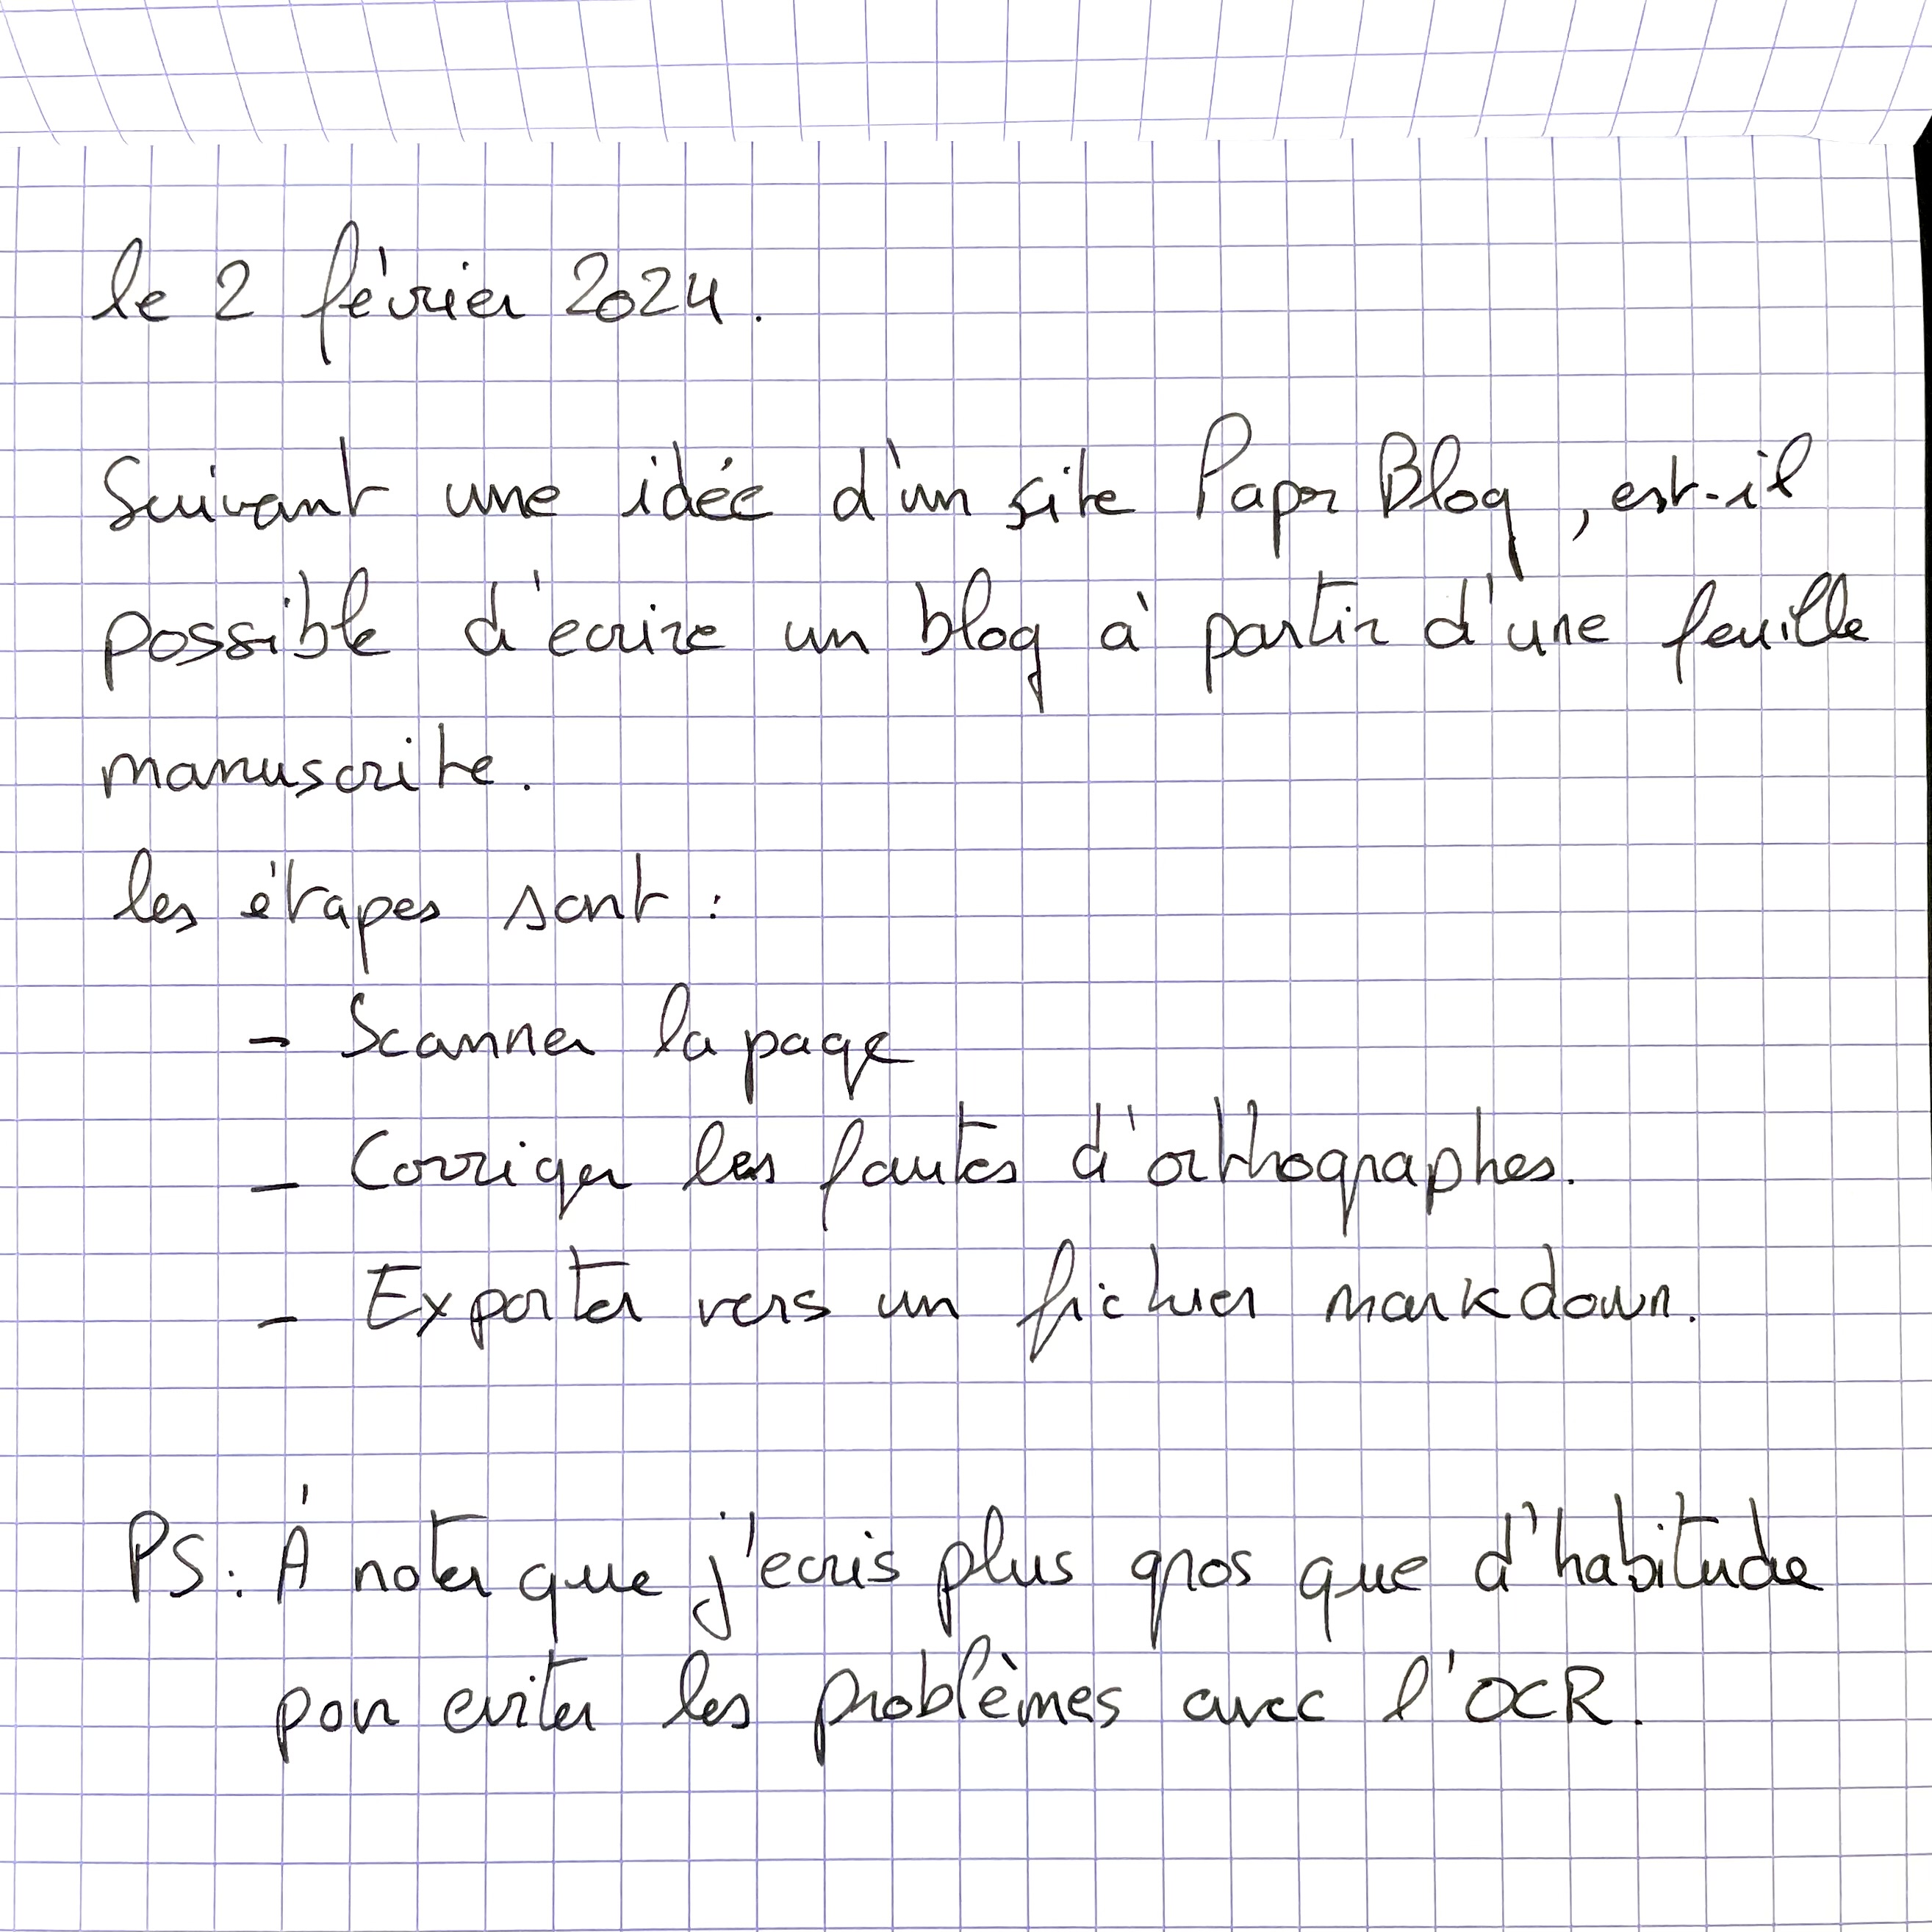 le 2 février 2024.
Suivant une idée d'un site Papr Blog, est-il
possible d'ecrire un blog à partir d'une feuille
manuscrite.
les étapes sont :
- Scanner la page
- Corriger les fautes d'orthographes.
- Exporter vers un fichier markdown.
PS: À noter que j'ecris plus gros que d'habitude
pour eviter les problèmes avec l'OCR.